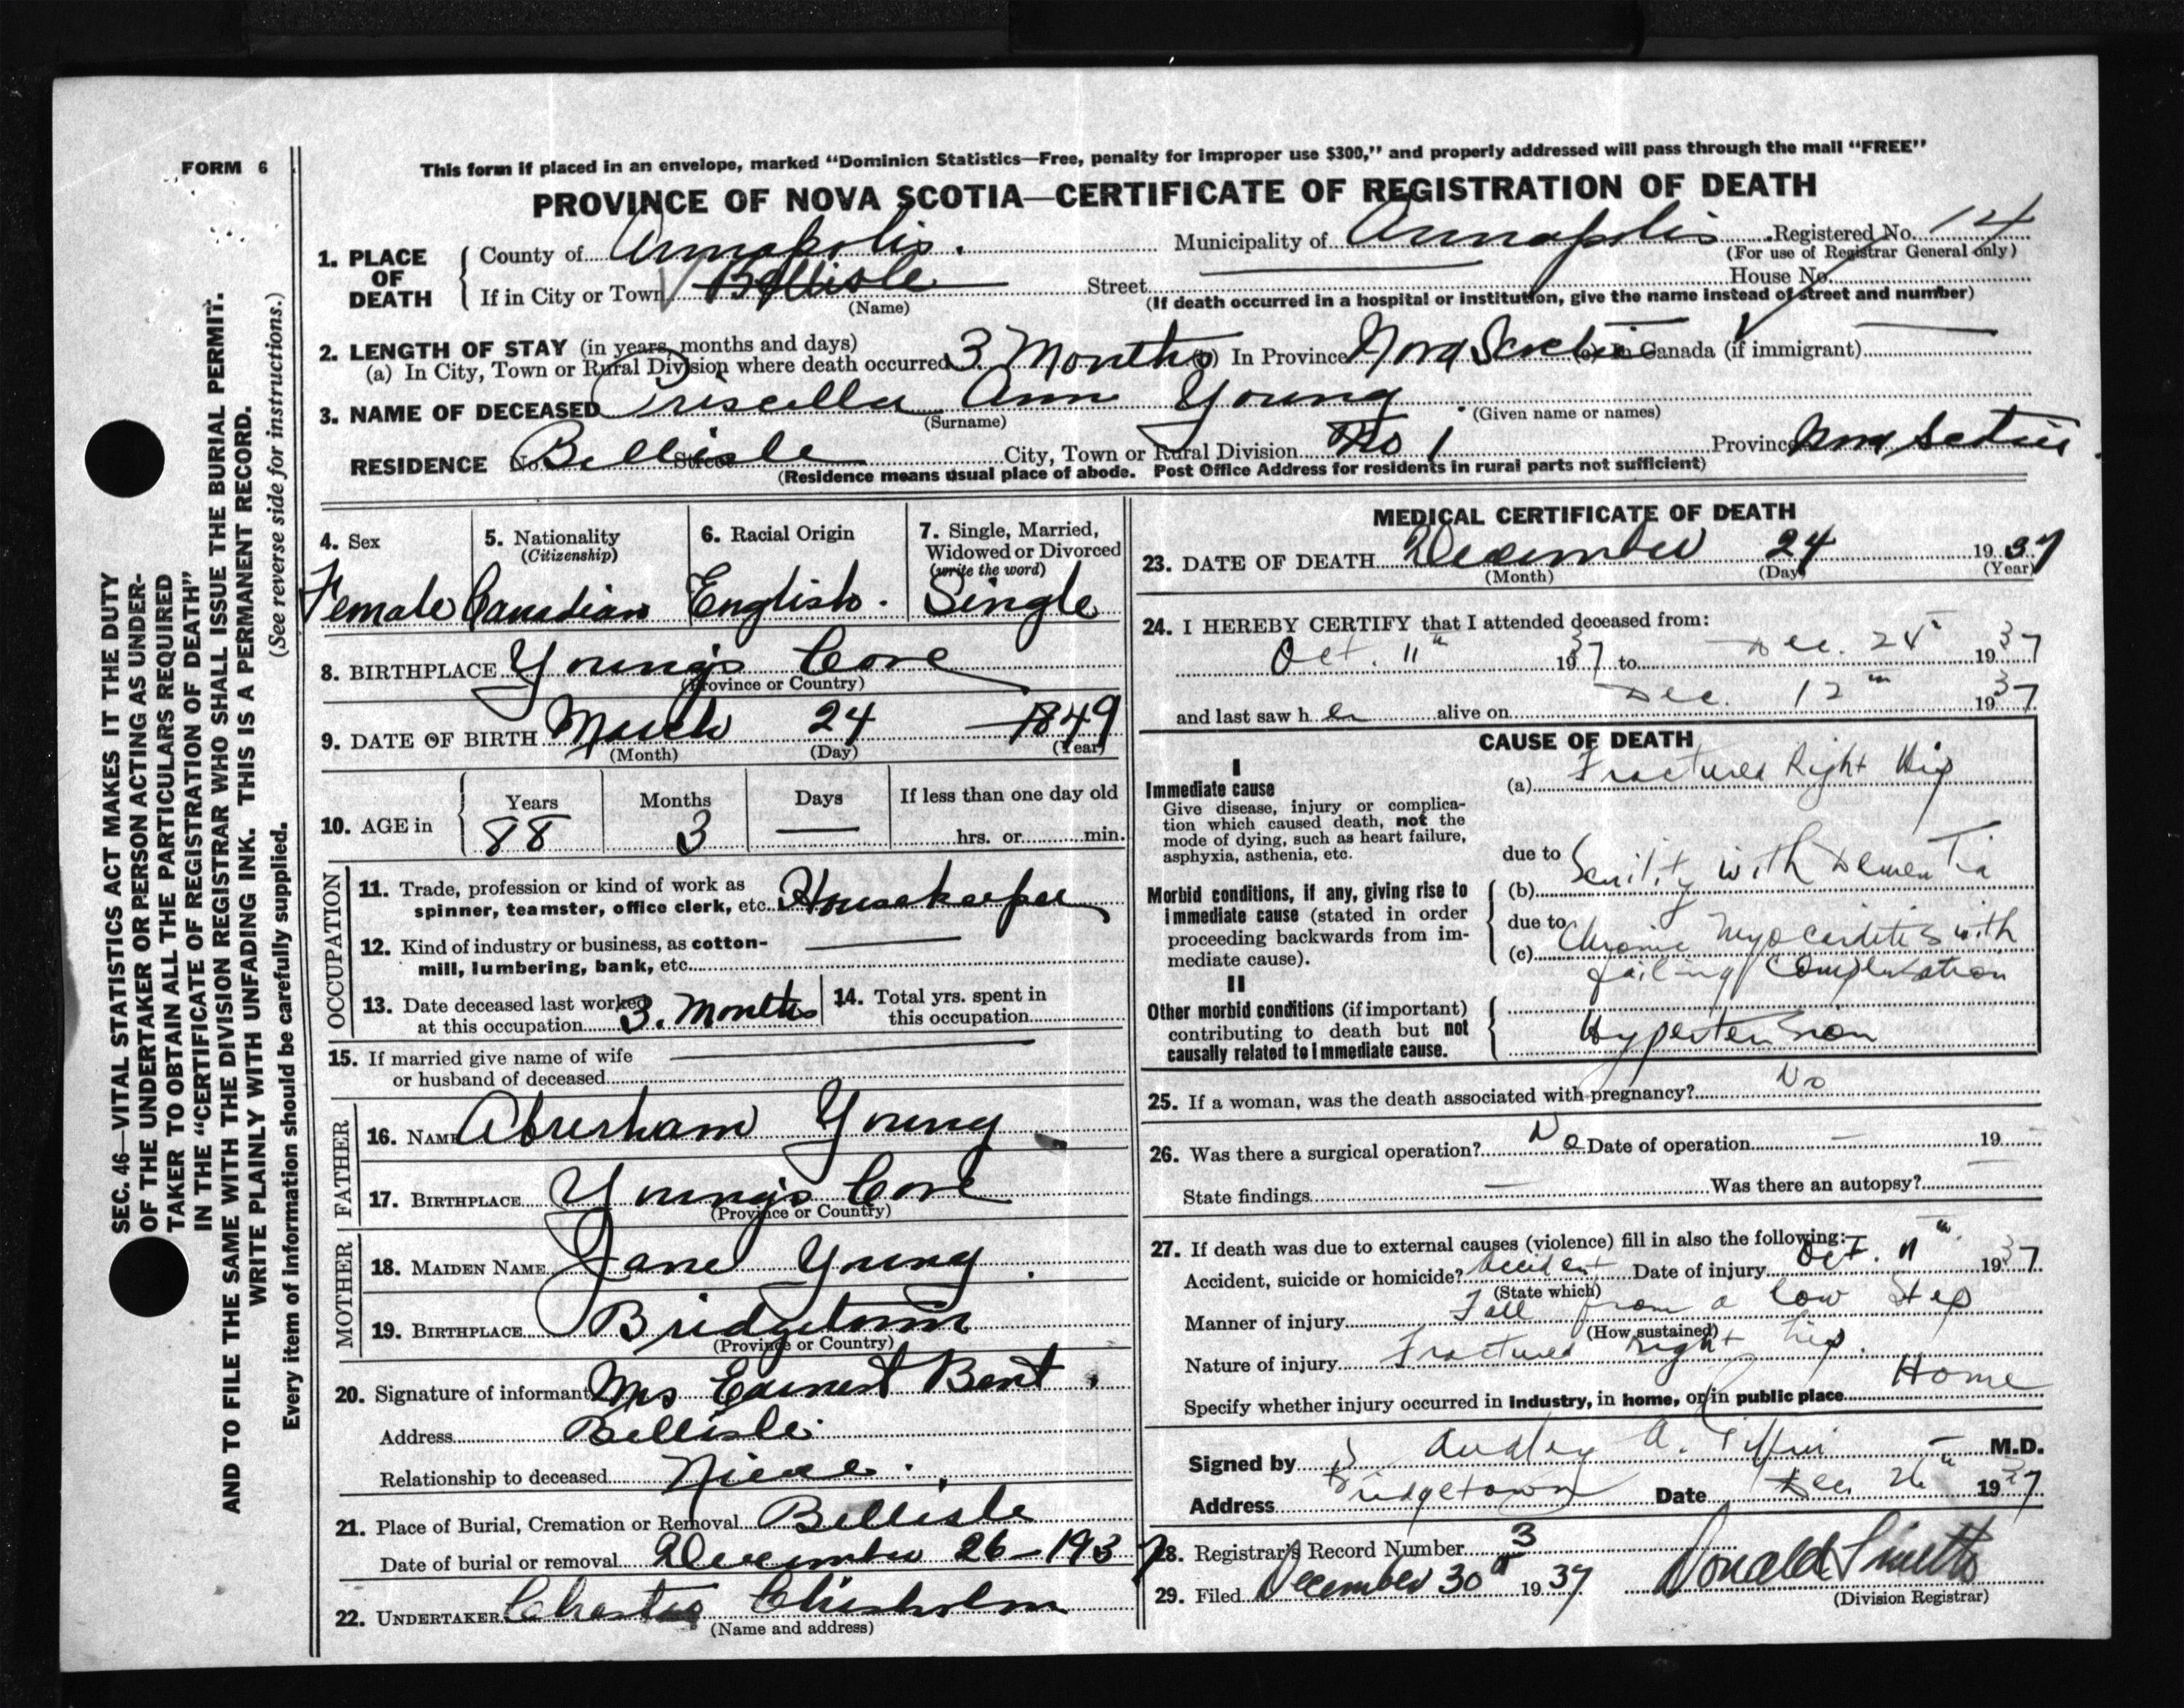 FORM 6
This form if placed in an envelope, marked "Dominion Statistics—Free, penalty for improper use $300," and properly addressed will pass through the mail "FREE"
PROVINCE OF NOVA SCOTIA—CERTIFICATE OF REGISTRATION OF DEATH
1. PLACE OF DEATH
County of Annapolis. Municipality of Annapolis Registered No. 14
(For use of Registrar General only)
If in City or Town Bellisle Street House No.
(Name) (If death occurred in a hospital or institution, give the name instead of street and number)
2. LENGTH OF STAY (in years, months and days)
(a) In City, Town or Rural Division where death occurred 3 Months (b) In Province Nova Scotia (c) In Canada (if immigrant)
3. NAME OF DECEASED Priscilla Ann Young
(Surname) (Given name or names)
RESIDENCE No. Bellisle Street City, Town or Rural Division No 1 Province Nova Scotia
(Residence means usual place of abode. Post Office Address for residents in rural parts not sufficient)
4. Sex
Female
5. Nationality
(Citizenship)
Canadian
6. Racial Origin
English.
7. Single, Married,
Widowed or Divorced
(write the word)
Single
8. BIRTHPLACE Young's Cove
(Province or Country)
9. DATE OF BIRTH March 24 1849
(Month) (Day) (Year)
10. AGE in
Years Months Days If less than one day old
88 3 — hrs. or min.
OCCUPATION
11. Trade, profession or kind of work as
spinner, teamster, office clerk, etc. Housekeeper
12. Kind of industry or business, as cotton-
mill, lumbering, bank, etc.
13. Date deceased last worked
at this occupation 3. Months
14. Total yrs. spent in
this occupation
15. If married give name of wife
or husband of deceased
FATHER
16. NAME Abursham Young
17. BIRTHPLACE Young's Cove
(Province or Country)
MOTHER
18. MAIDEN NAME Jane Young.
19. BIRTHPLACE Bridgetown
(Province or Country)
20. Signature of informant Mrs Earnest Bent.
Address Bellisle
Relationship to deceased Niece.
21. Place of Burial, Cremation or Removal Bellisle
Date of burial or removal December 26 - 1937
22. UNDERTAKER Chisholm
(Name and address)
MEDICAL CERTIFICATE OF DEATH
23. DATE OF DEATH December 24 1937
(Month) (Day) (Year)
24. I HEREBY CERTIFY that I attended deceased from:
Oct. 11th 1937 to Dec. 24th 1937
and last saw her alive on Dec. 12th 1937
CAUSE OF DEATH
I
Immediate cause
Give disease, injury or complica-
tion which caused death, not the
mode of dying, such as heart failure,
asphyxia, asthenia, etc.
(a) Fractured Right Hip
due to
Morbid conditions, if any, giving rise to
immediate cause (stated in order
proceeding backwards from im-
mediate cause).
(b) Senility with Dementia
due to
(c) Chronic Myocarditis with
failing compensation
II
Other morbid conditions (if important)
contributing to death but not
causally related to immediate cause.
Hypertension
25. If a woman, was the death associated with pregnancy? No
26. Was there a surgical operation? No Date of operation — 19
State findings — Was there an autopsy? —
27. If death was due to external causes (violence) fill in also the following:—
Accident, suicide or homicide? Accident Date of injury Oct. 11th 1937
(State which)
Manner of injury Fall from a low step
(How sustained)
Nature of injury Fractured right hip.
Specify whether injury occurred in Industry, in home, or in public place Home
Signed by Audley A. Giffin M.D.
Address Bridgetown Date Dec 26th 1937
28. Registrar's Record Number 3
29. Filed December 30th 1937 Donald
(Division Registrar)
SEC. 46—VITAL STATISTICS ACT MAKES IT THE DUTY
OF THE UNDERTAKER OR PERSON ACTING AS UNDER-
TAKER TO OBTAIN ALL THE PARTICULARS REQUIRED
IN THE "CERTIFICATE OF REGISTRATION OF DEATH"
AND TO FILE THE SAME WITH THE DIVISION REGISTRAR WHO SHALL ISSUE THE BURIAL PERMIT.
WRITE PLAINLY WITH UNFADING INK. THIS IS A PERMANENT RECORD.
(See reverse side for instructions.)
Every item of information should be carefully supplied.